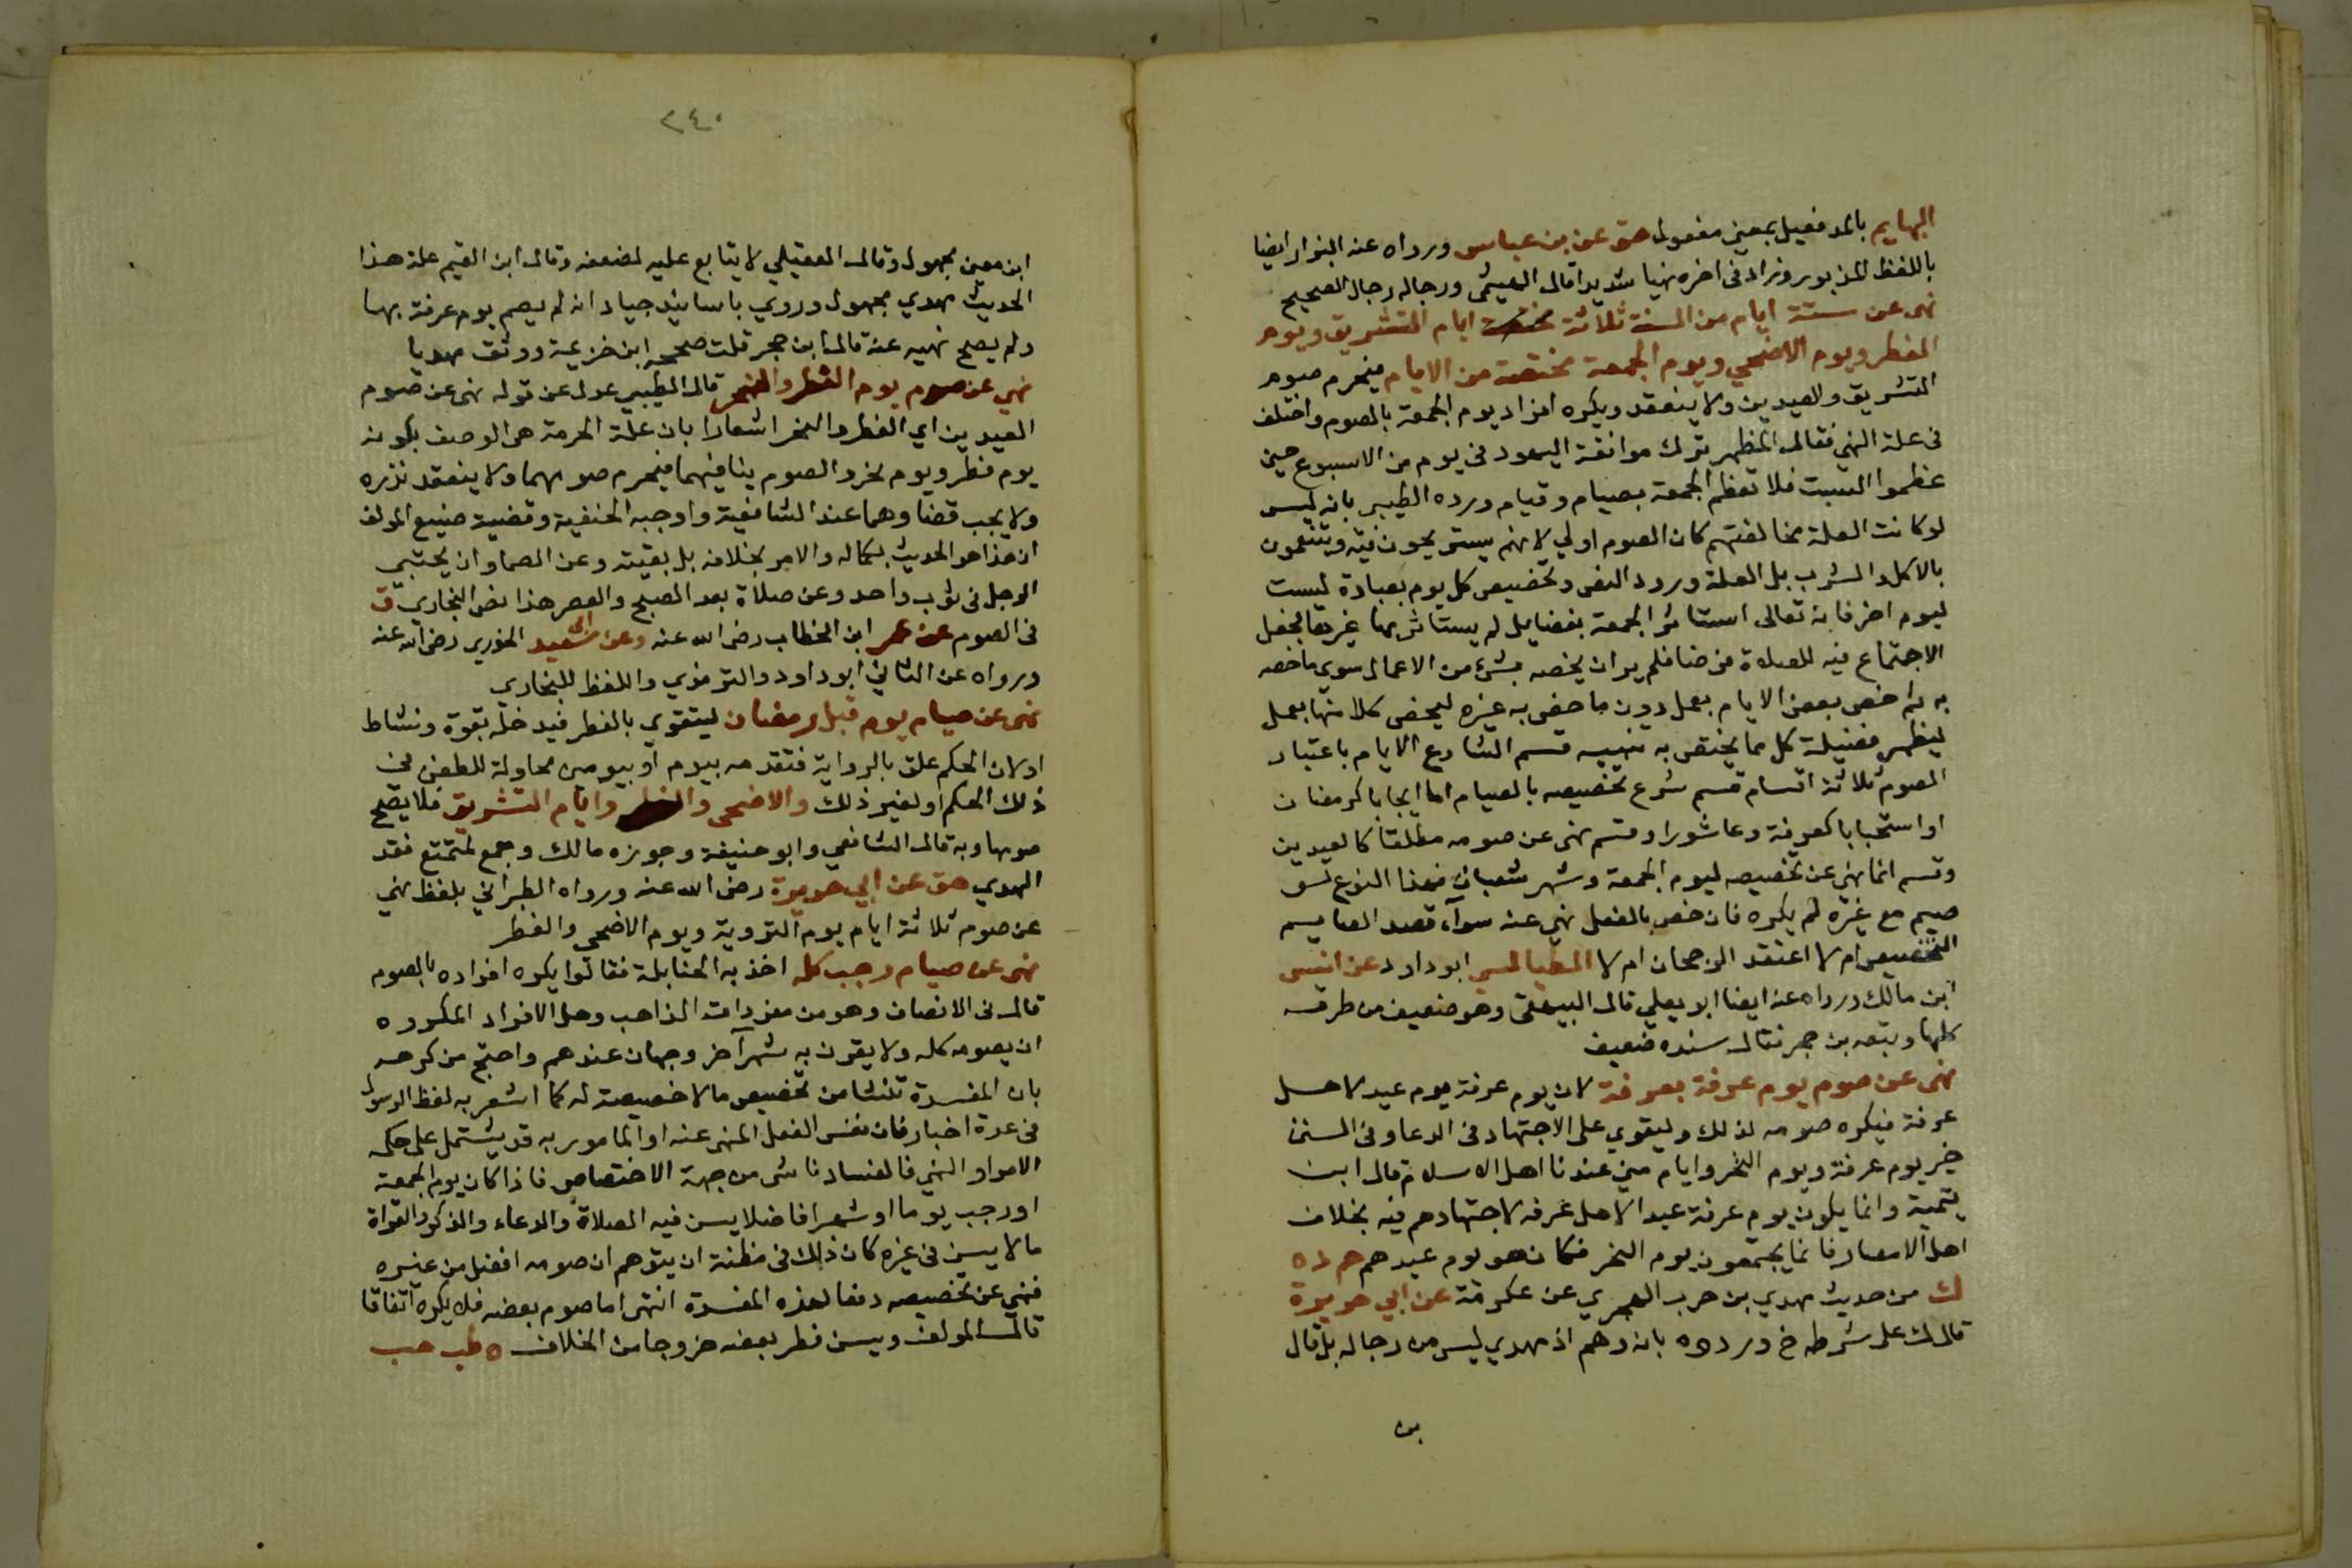 البهايم بالمد فعيل بمعنى مفعول هق عن بن عباس ورواه عنه البزار ايضا
باللفظ المزبور وزاد فى اخره نهيا شديدا قال الهيثمى ورجاله رجال الصحيح
نهى عن ستة ايام من السنة ثلاثة ايام التشريق ويوم
الفطر ويوم الاضحى ويوم الجمعة مختصة من الايام فيحرم صوم
التشريق والعيدين ولا ينعقد ويكره افراد يوم الجمعة بالصوم واختلف
فى علة النهي فقال المظهر ترك موافقة اليهود فى يوم من الاسبوع حين
عظموا السبت فلا تعظم الجمعة بصيام وقيام ورده الطيبي بانه ليس
لو كانت العلة مخالفتهم كان الصوم اولي لانهم يستريحون فيه ويتنعمون
بالاكل والشرب بل العلة ورود النص وتخصيص كل يوم بعبادة ليست
ليوم اخر فانه تعالى استاثر الجمعة بفضايل لم يستاثر بها غيرها فجعل
الاجتماع فيه للصلاة فرضا فلم ير ان يخصه بشئ من الاعمال سوي ما خصه
به ثم خص بعض الايام بعمل دون ما خص به غيره ليختص كلا منها بعمل
ليظهر فضيلة كل مما يختص به تنبيه قسم الشارع الايام باعتبار
الصوم ثلاثة اقسام قسم شرع تخصيصه بالصيام اما ايجابا كرمضان
او استحبابا كعرفة وعاشورا وقسم نهى عن صومه مطلقا كالعيدين
وقسم انما نهى عن تخصيصه ليوم الجمعة وشهر شعبان فهذا النوع لو
صيم مع غيره لم يكره فان خص بالفعل نهي عنه سوآء قصد الصايم
التخصيص ام لا اعتقد الرجحان ام لا الطيالسي ابو داود عن انس
ابن مالك ورواه عنه ايضا ابو يعلي قال البيهقى وهو ضعيف من طرقه
كلها وتبعه بن حجر فقال سنده ضعيف
نهى عن صوم يوم عرفة بعرفة لان يوم عرفة يوم عيد لاهل
عرفة فيكره صومه لذلك وليقوي على الاجتهاد فى الدعا وفى السنن
خبر يوم عرفة ويوم النحر وايام منى عندنا اهل الاسلام قال ابن
تيمية وانما يكون يوم عرفة عيد الاهل عرفه لاجتهادهم فيه بخلاف
اهل الامصار فانما يجتمعون يوم النحر فكان هو يوم عيدهم حم د ه
ك من حديث مهدي بن حرب الهجري عن عكرمة عن ابي هريرة
قال ك على شرط خ وردوه بانه وهم اذ مهدي ليس من رجاله بل قال
بن
٢٤٠
ابن معين مجهول وقال العقيلي لا يتابع عليه لضعفه وقال ابن القيم علة هذا
الحديث مهدي مجهول وروي باسانيد جياد انه لم يصم يوم عرفة بها
ولم يصح نهيه عنه قال ابن حجر قلت صححه ابن خزيمة ووثق مهديا
نهي عن صوم يوم الفطر والنحر قال الطيبي عدل عن قوله نهى عن صوم
العيدين اي الفطر والنحر اشعارا بان علة الحرمة هى الوصف بكونه
يوم فطر ويوم نحر والصوم ينافيهما فيحرم صومهما ولا ينعقد نذره
ولا يجب قضاوهما عند الشافعية واوجبه الحنفية وقضية صنيع المولف
ان هذا هو الحديث بكماله والامر بخلافه بل بقيته وعن الصما وان يحتبى
الرجل فى ثوب واحد وعن صلاة بعد الصبح والعصر هذا نص البخاري ق
فى الصوم عن عمر ابن الخطاب رضى الله عنه وعن ابى سعيد الخدري رضى الله عنه
ورواه عن الثاني ابو داود والترمذي واللفظ للبخاري
نهى عن صيام يوم قبل رمضان ليتقوي بالفطر فيدخله بقوة ونشاط
او لان الحكم علق بالرواية فتقدمه بيوم او بيومين محاولة للطعن فى
ذلك الحكم او لغير ذلك والاضحى والفطر وايام التشريق فلا يصح
صومها وبه قال الشافعي وابو حنيفة وجوزه مالك وجمع لمتمتع فقد
الهدي هق عن ابي هريرة رضى الله عنه ورواه الطبراني بلفظ نهي
عن صوم ثلاثة ايام يوم التروية ويوم الاضحى والفطر
نهى عن صيام رجب كله اخذ به الحنابلة فقالوا يكره افراده بالصوم
قال فى الانصاف وهو من مفردات المذاهب وهل الافراد المكروه
ان يصومه كله ولا يقرن به شهرآخر وجهان عندهم واحتج من كرهه
بان المفسدة تنشا من تخصيص ما لا خصيصة له كما اشعر به لفظ الرسول
فى عدة اخبار فان نفس الفعل المنهى عنه او المامور به قد يشتمل على حكمه
الامر او النهي فالفساد ناشى من جهة الاختصاص فاذا كان يوم الجمعة
او رجب يوما او شهرا فاضلا يسن فيه الصلاة والدعاء والذكر والقراة
ما لا يسن فى غيره كان ذلك فى مظنة ان يتوهم ان صومه افضل من غيره
فنهي عن تخصيصه دفعا لهذه المفسدة انتهى اما صوم بعضه فلا يكره اتفاقا
قال المولف ويسن فطر بعضه خروجا من الخلاف ه طب هب